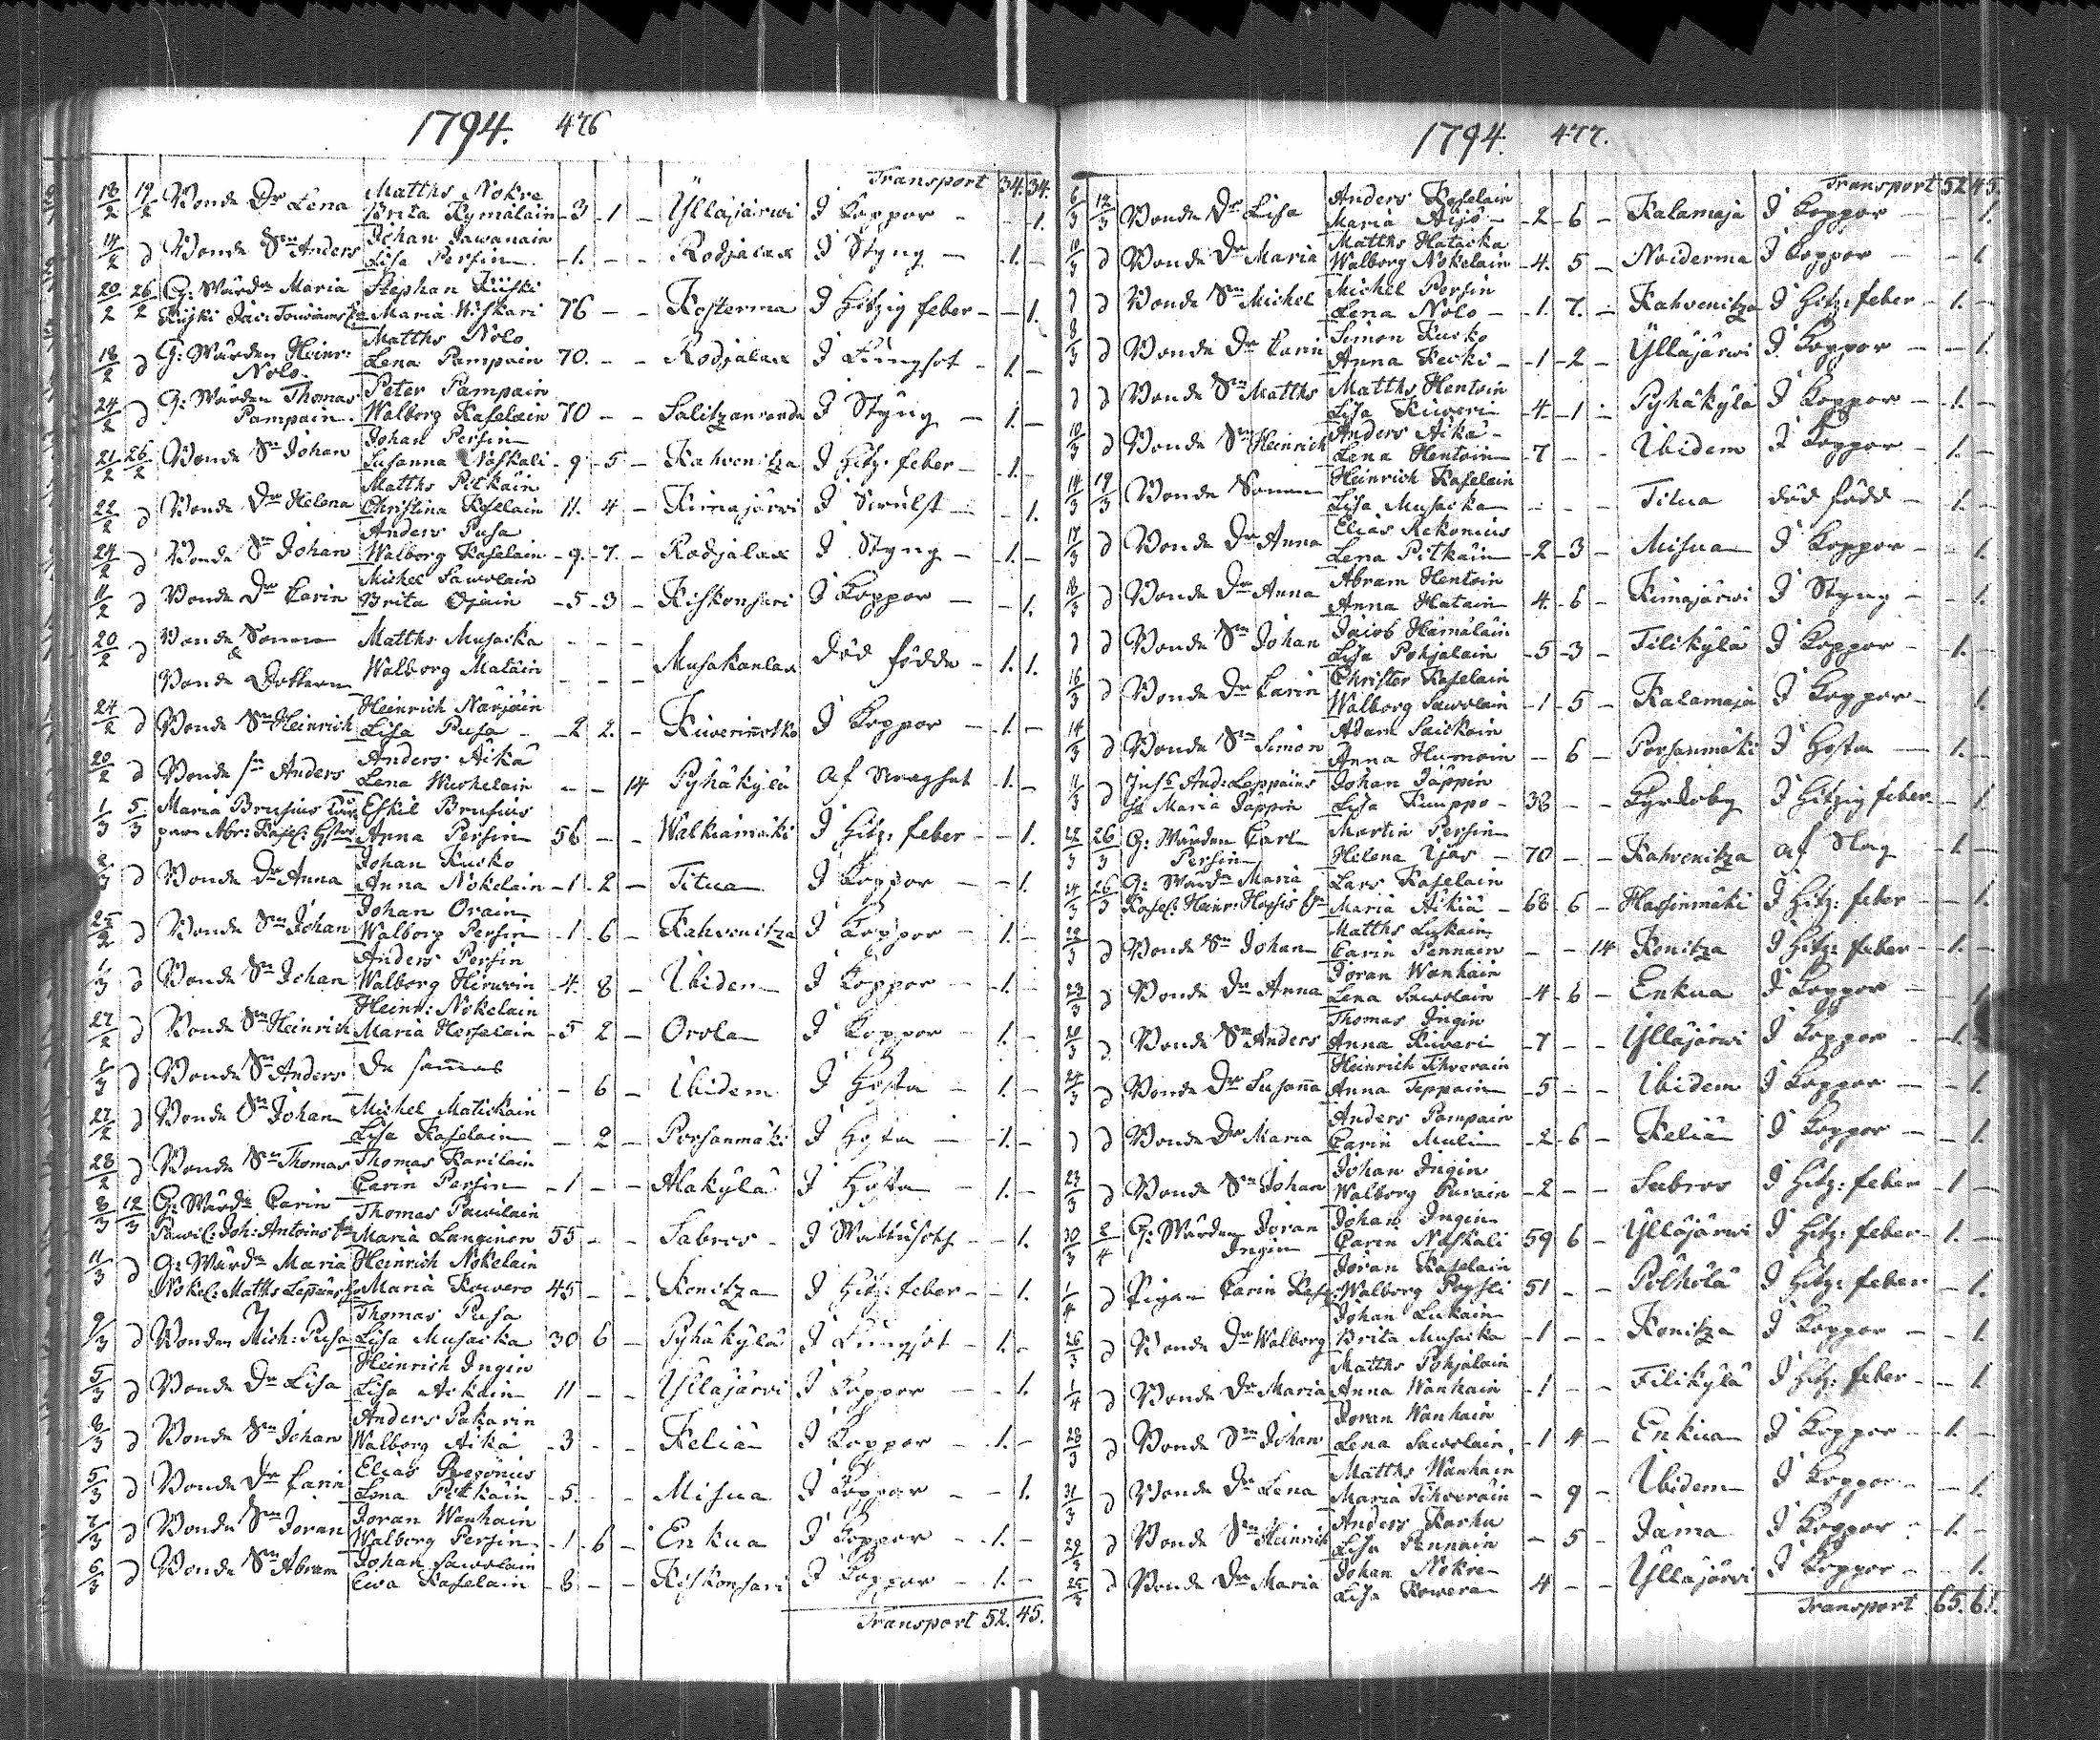 1794. 476
Transport 34. 34.
18/2 19/2 Bonde Dr Lena Matths Nokre
Brita Kymäläin 3 1 - Ylläjärwi I Koppor - - 1.
14/2 d Bonde Sn Anders Johan Jawanain
Lisa Persin 1. - - Rodjalax I Styng - 1. -
20/2 26/2 G: Wärdn Maria Stephan Kiiski
Kiiski Maria Wiskari 76 - - Kosterma I Hitzig feber - - 1.
18/2 d G: Wärden Heinr: Matths Nolo
Nolo. Lena Pampain 70. - - Rodjalax I Lungsot - 1. -
24/2 d G: Wärden Thomas Peter Pampain
Pampain. Walborg Kaselain 70 - - Salitzanranda I Styng - 1. -
21/2 26/2 Bonde Sn Johan Johan Persin
Susanna Naskali 9 5 - Kahvenitza I Hitz: feber - 1. -
22/2 d Bonde Dr Helena Matths Pitkäin
Christina Kaselain 11. 4 - Kimajärvi I Swulst - - 1.
24/2 d Bonde Sn Johan Anders Pusa
Walborg Kaselain 9. 7. - Rodjalax I Styng - 1. -
11/2 d Bonde Dr Carin Michel Sawolain
Brita Ojain 5 3 - Kiskonsari I Koppor - - 1.
20/2 d Bonde Sonen Matths Musacka - - -
&
Bonde Dottern Walborg Matäin - - - Musakanlax död födde - 1. 1.
24/2 d Bonde Sn Heinrich Heinrich Närjäin
Lisa Pusa 2 2. - Kiwerinotko I Koppor - 1. -
20/2 d Bonde sn Anders Anders Äikä
Lena Warhelain - - 14 Pyhäkylä af - 1. -
1/3 5/3 Maria Brusius Eskil Brusius
Anna Persin 56 - - Walkiamäki I Hitz: feber - - 1.
2/3 d Bonde Dr Anna Johan Kusko
Anna Nokelain 1 2 - Titua I Koppor - - 1.
25/2 d Bonde Sn Johan Johan Orain
Walborg Persin 1 6 - Kahvenitza I Koppor - 1. -
1/3 d Bonde Sn Johan Anders Persin
Walborg Hirwoin 4. 8 - Ibidem I Koppor - 1. -
27/2 d Bonde Sn Heinrich Heinr: Nokelain
Maria Hesselain 5 2 - Orola I Koppor - 1. -
1/3 d Bonde Sn Anders De sammas - 6 - Ibidem I Hosta - 1. -
27/2 d Bonde Sn Johan Michel Matickain
Lisa Kaselain - 2 - Porsanmäki I Hosta - 1. -
28/2 d Bonde Sn Thomas Thomas Karilain
Carin Persin 1 - - Alakylä I Hosta - 1. -
8/3 12/3 G: Wärdn Carin Thomas Pawilain
Pawil: Joh: Antoins Maria Langinen 55 - - Sabros I Wattusoth - - 1.
11/3 d G: Wärdn Maria Heinrich Nokelain
Nokel: Matths Lepäins Maria Kowero 45 - - Konitza I Hitz: feber - - 1.
9/3 d Bonden Mich: Pusa Thomas Pusa
Lisa Musacka 30 6 - Pyhäkylä I Lungsot - 1. -
5/3 d Bonde Dr Lisa Heinrich Ingin
Lisa Ackäin 11 - - Ylläjärvi I Koppor - - 1.
8/3 d Bonde Sn Johan Anders Pakarin
Walborg Äikä 3 - - Keliä I Koppor - 1. -
5/3 d Bonde Dr Carin Elias
Lena Pitkäin 5. - - Misua I Koppor - - 1.
7/3 d Bonde Sn Joran Joran Wanhain
Walborg Persin 1 6 - Enkua I Koppor - 1. -
6/3 d Bonde Sn Abram Johan Sawolain
Ewa Kaselain 8 - - Kiskonsari I Koppor - 1. -
Transport 52. 45.
1794. 477.
Transport 52 45.
6/3 12/3 Bonde Dr Lisa Anders Kaselain
Maria Äijö 2 6 - Kalamaja I Koppor - - 1.
11/3 d Bonde Dr Maria Matths Hatacka
Walborg Nokelain 4. 5 - Noiderma I Koppor - - 1
d d Bonde Sn Michel Michel Persin
Lena Nolo 1. 7. - Kahvenitza I Hitz: feber - 1. -
8/3 d Bonde Dr Carin Simon Kusko
Anna Kecki 1 2 - Ylläjärwi I Koppor - - 1.
d d Bonde Sn Matths Matths Hentoin
Lisa Kiweri 4. 1 - Pyhäkylä I Koppor - 1. -
10/3 d Bonde Sn Heinrich Anders Äikä
Lena Hentoin 7 - - Ibidem I Koppor - 1. -
14/3 19/3 Bonde Sonen Heinrich Kaselain
Lisa Musacka - - - Titua död född - 1. -
17/3 d Bonde Dr Anna Elias Rekonius
Lena Pitkäin 2 3 - Misua I Koppor - - 1.
18/3 d Bonde Dr Anna Abram Hentoin
Anna Hatain 4. 6 - Kimajärwi I Styng - - 1.
d d Bonde Sn Johan Jacob Hämäläin
Lisa Pohjalain 5 3 - Tilikylä I Koppor - 1. -
16/3 d Bonde Dr Carin Christer Kaselain
Walborg Sawolain 1 5 - Kalamaja I Koppor - - 1.
14/3 d Bonde Sn Simon Adam Saickoin
Anna Humoin - 6 - Porsanmäki I Hosta - 1. -
11/3 d Inhs And: Leppäins Johan Jäppin
Maria Jäppin Lisa Kumppo 38 - - Kyrkoby I Hitzig feber - 1.
22/3 26/3 G: Wärden Carl Martin Persin
Persin Helena Ijäs 70 - - Kahvenitza af Slag - 1. -
24/3 26/3 G: Wärdn Maria Lars Kaselain
Kasel: Heinr: Maria Äikiä 68 6 - Hassinmäki I Hitz: feber - - 1.
22/3 d Bonde Sn Johan Matths Lukain
Carin Pennain - - 14 Konitza I Hitz: feber - 1. -
23/3 d Bonde Dr Anna Joran Wanhain
Lena Sawolain 4 6 - Enkua I Koppor - - 1
20/3 d Bonde Sn Anders Thomas Ingin
Anna Kiweri 7 - - Ylläjärwi I Koppor - 1. -
24/3 d Bonde Dr Susanna Heinrich Tihverain
Anna Teppain 5 - - Ibidem I Koppor - - 1.
d d Bonde Dr Maria Anders Pampain
Carin Mulin 2 6 - Keliä I Koppor - - 1.
23/3 d Bonde Sn Johan Johan Ingin
Walborg Purain 2 - - Sabros I Hitz: feber - 1 -
30/3 2/4 G: Wärden Joran Johan Ingin
Ingin Carin Naskali 59 6 - Ylläjärwi I Hitz: feber - 1. -
1/4 d Pigan Carin Kasel: Joran Kaselain
Walborg Poysti 51 - - Pölhölä I Hitz: feber - - 1.
26/3 d Bonde Dr Walborg Johan Lukain
Brita Musacka 1 - - Konitza I Koppor - - 1.
1/4 d Bonde Dr Maria Matths Pohjalain
Anna Wanhain 1 - - Tilikylä I Hitz: feber - - 1.
28/3 d Bonde Sn Johan Joran Wanhain
Lena Sawolain. 1 4 - Enkua I Koppor - 1. -
31/3 d Bonde Dr Lena Matths Wanhain
Maria Tihveräin - 9 - Ibidem I Koppor - - 1.
29/3 d Bonde Sn Heinrich Anders Karhu
Lisa Pennain - 5 - Jama I Koppor - 1. -
25/3 d Bonde Dr Maria Johan Nokre
Lisa Kowera 4 - - Ylläjärvi I Koppor - - 1.
Transport 65. 61.